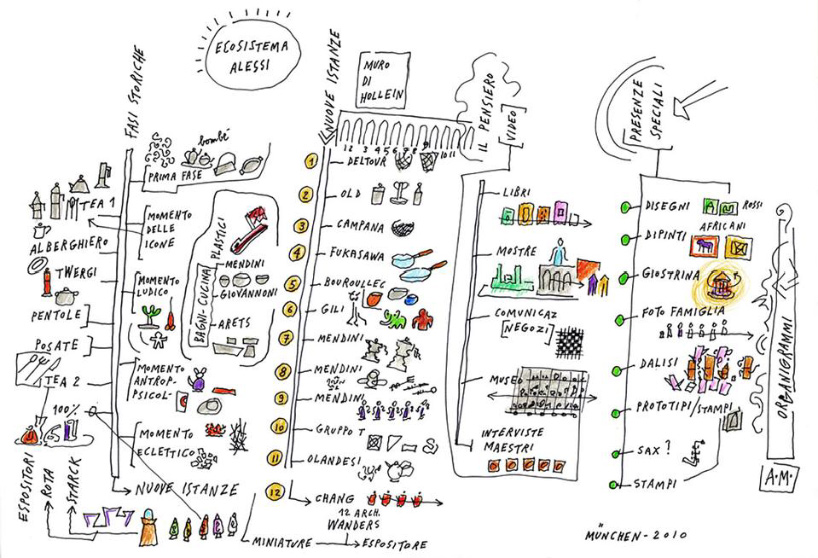 ECOSISTEMA
ALESSI
FASI STORICHE
bombé
PRIMA FASE
TEA 1
MOMENTO
DELLE
ICONE
ALBERGHIERO
TWERGI
MOMENTO
LUDICO
PENTOLE
POSATE
TEA 2
MOMENTO
ANTROP-
PSICOL-
100%
MOMENTO
ECLETTICO
NUOVE ISTANZE
ESPOSITORI
ROTA
STARCK
BAGNI-CUCINA
PLASTICI
MENDINI
GIOVANNONI
ARETS
NUOVE ISTANZE
MURO
DI
HOLLEIN
1 2 3 4 5 6 7 8 9 10 11
1 DELTOUR
2 OLD
3 CAMPANA
4 FUKASAWA
5 BOUROULLEC
6 GILI
7 MENDINI
8 MENDINI
9 MENDINI
10 GRUPPO T
11 OLANDESI
12 CHANG
12 ARCH.
WANDERS
MINIATURE
ESPOSITORE
IL PENSIERO
[VIDEO]
LIBRI
MOSTRE
COMUNICAZ
[NEGOZI]
MUSEO
INTERVISTE
MAESTRI
PRESENZE
SPECIALI
DISEGNI
ROSSI
AFRICANI
DIPINTI
GIOSTRINA
FOTO FAMIGLIA
DALISI
PROTOTIPI/STAMPI
SAX?
STAMPI
ORGANIGRAMMI
A.M.
MÜNCHEN-2010